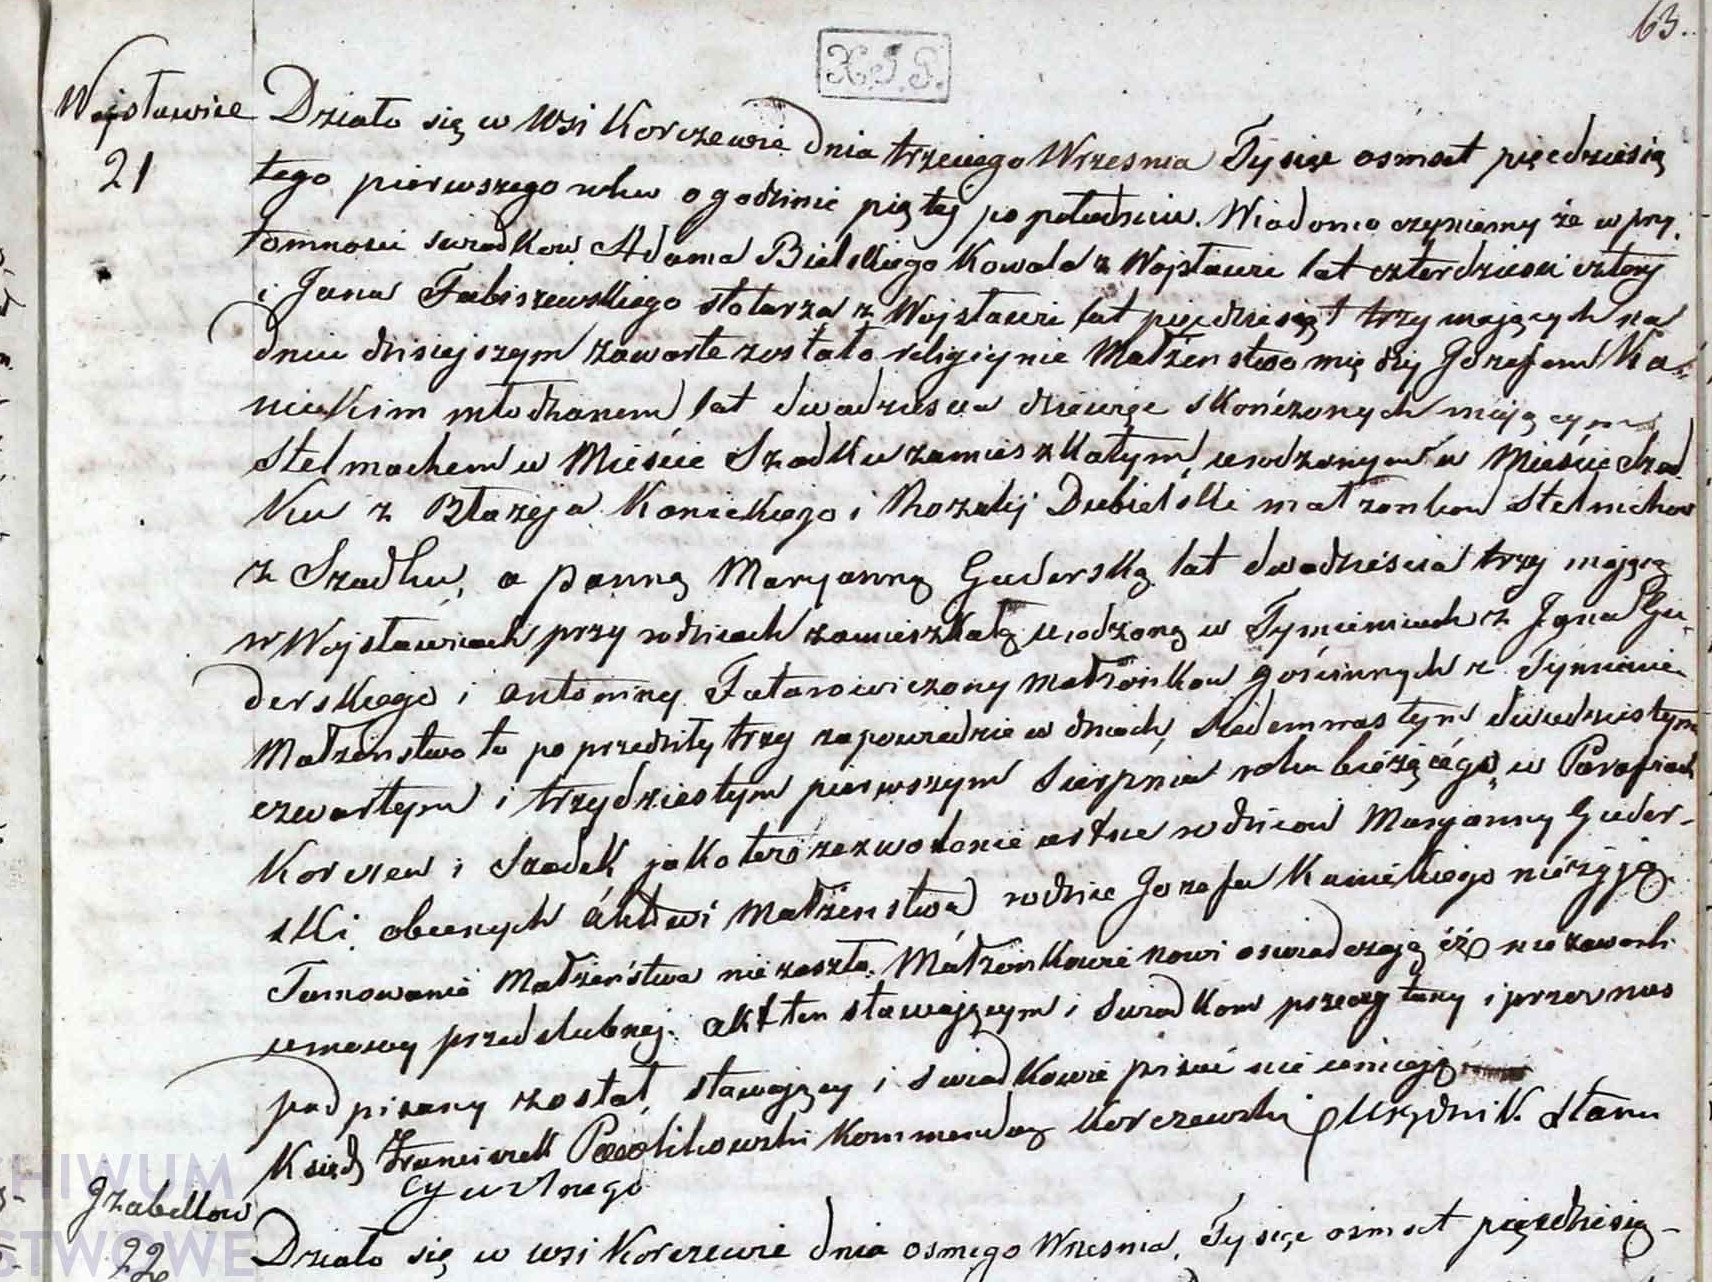 63.
X.J.G.
Wojsławice
21
Działo się w wsi Korczewie dnia trzeciego Września Tysiąc osmset pięcdziesią
tego pierwszego roku o godzinie piątej po południu. Wiadomo czyniemy że w przy
tomności swiadków Adama Bielskiego Kowala z Wojsławic lat czterdzieści cztery
i Jana Fabiszewskiego stolarza z Wojsławic lat pięcdziesiąt trzy mających na
dniu dzisiejszym zawarte zostało religijnie Małżenstwo między Jozefem Ka-
nieckim młodzianem lat dwadziescia dziewięc skończonych mającym
Stelmachem w Mieście Szadku zamieszkałym, urodzonym w Mieście Szad
ku z Błażeja Kanieckiego i Rozalij Dubielski małzonkow Stelmchow
z Szadku, a panną Maryanną Guderską lat dwadzieścia trzy mającą
w Wojsławicach przy rodzicach zamieszkałą urodzoną w Tymienicach z Jgna Gu-
derskiego i Antoniny Fatarowiczony małżonkow gościnnych z Tymienic
Małżenstwo to poprzedziły trzy zapowiedzie w dniach, siedemnastym dwudziestym
czwartym i trzydziestym pierwszym Sierpnia roku bieżącego, w Parafiach
Korczew i Szadek jako też zezwolenie ustne rodzicow Maryanny Guder-
ski obecnych áktowi małżenstwa rodzice Jozefa Kanieckiego nieżyją.
Tamowanie Małżeństwa nie zaszło. Małżonkowie nowi oswiadczają iż nie zawarli
umowy przedslubnej. Akt ten stawającym i swiadkom przeczytany i przez nas
podpisany został, stawający i swiadkowie pisać nie umieją
Ksiądz Franciszek Pawlikowski Kommendarz Korczewski Urzędnik Stanu
Cywilnego
Jzabellow
22
Działo się w wsi Korczewie dnia osmego Wrzesnia, Tysiąc osmset pięcdziesią-
HIWUM
STWOWE